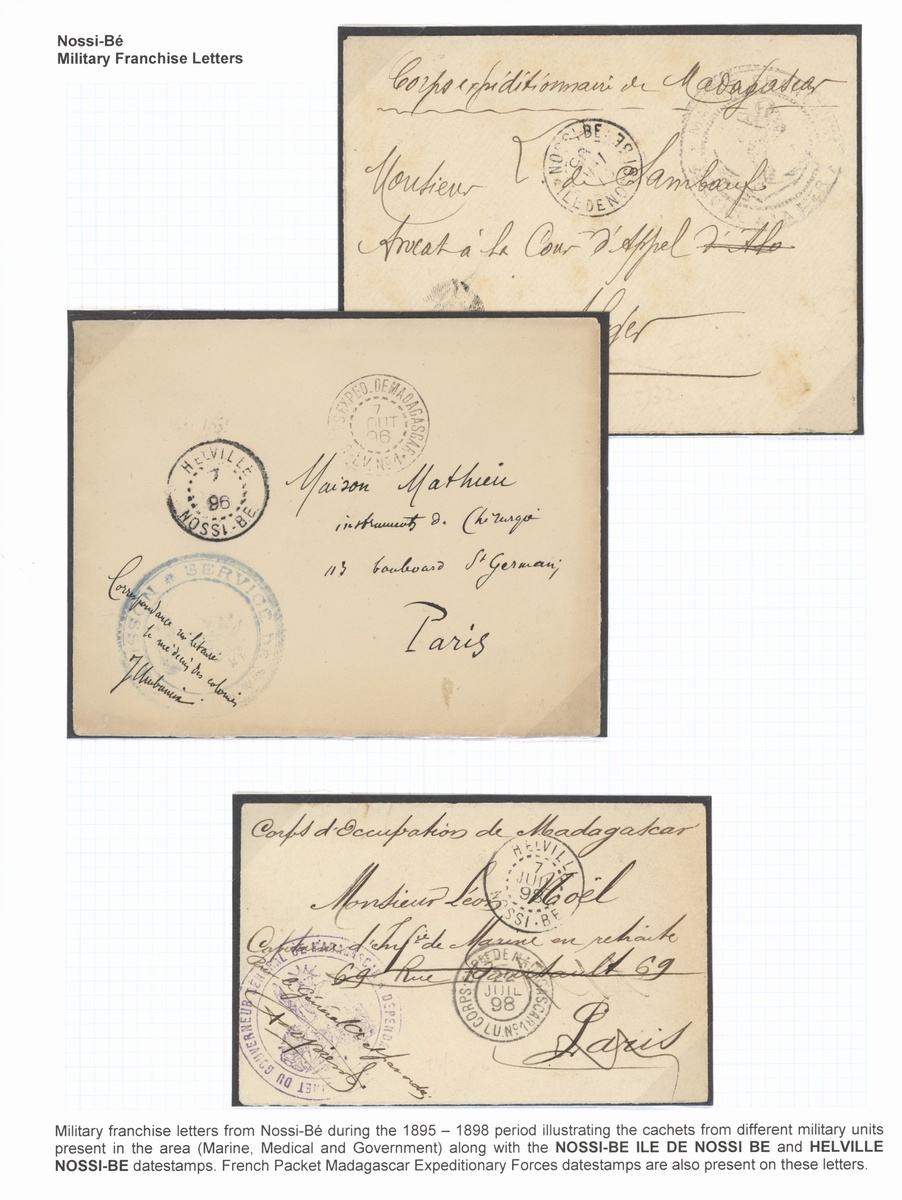 Nossi-Bé
Military Franchise Letters
Corps expéditionnaire de Madagascar
NOSSI-BE
ILE DE NOSSI
Monsieur
de Lambœuf
Avocat à la Cour d'Appel
Alger
S EXPED. DE MADAGASCAR
7
OUT
96
LV No 1
HELVILLE
7
96
NOSSI-BE
Maison Mathieu
instruments de Chirurgie
113 boulevard St Germain,
Paris
SERVICE DE
Correspondance militaire
le médecin des colonies
Corps d'Occupation de Madagascar
HELVILLE
7
JUIL
98
NOSSI-BE
Monsieur Léon Noël
Capitaine d'Infie de Marine en retraite
69 Rue 69
JUIL
98
Paris
CORPS
NET DU GOUVERNEUR GENERAL DE MADAGASCAR
DEPEND
le Général
Military franchise letters from Nossi-Bé during the 1895 – 1898 period illustrating the cachets from different military units
present in the area (Marine, Medical and Government) along with the NOSSI-BE ILE DE NOSSI BE and HELVILLE
NOSSI-BE datestamps. French Packet Madagascar Expeditionary Forces datestamps are also present on these letters.